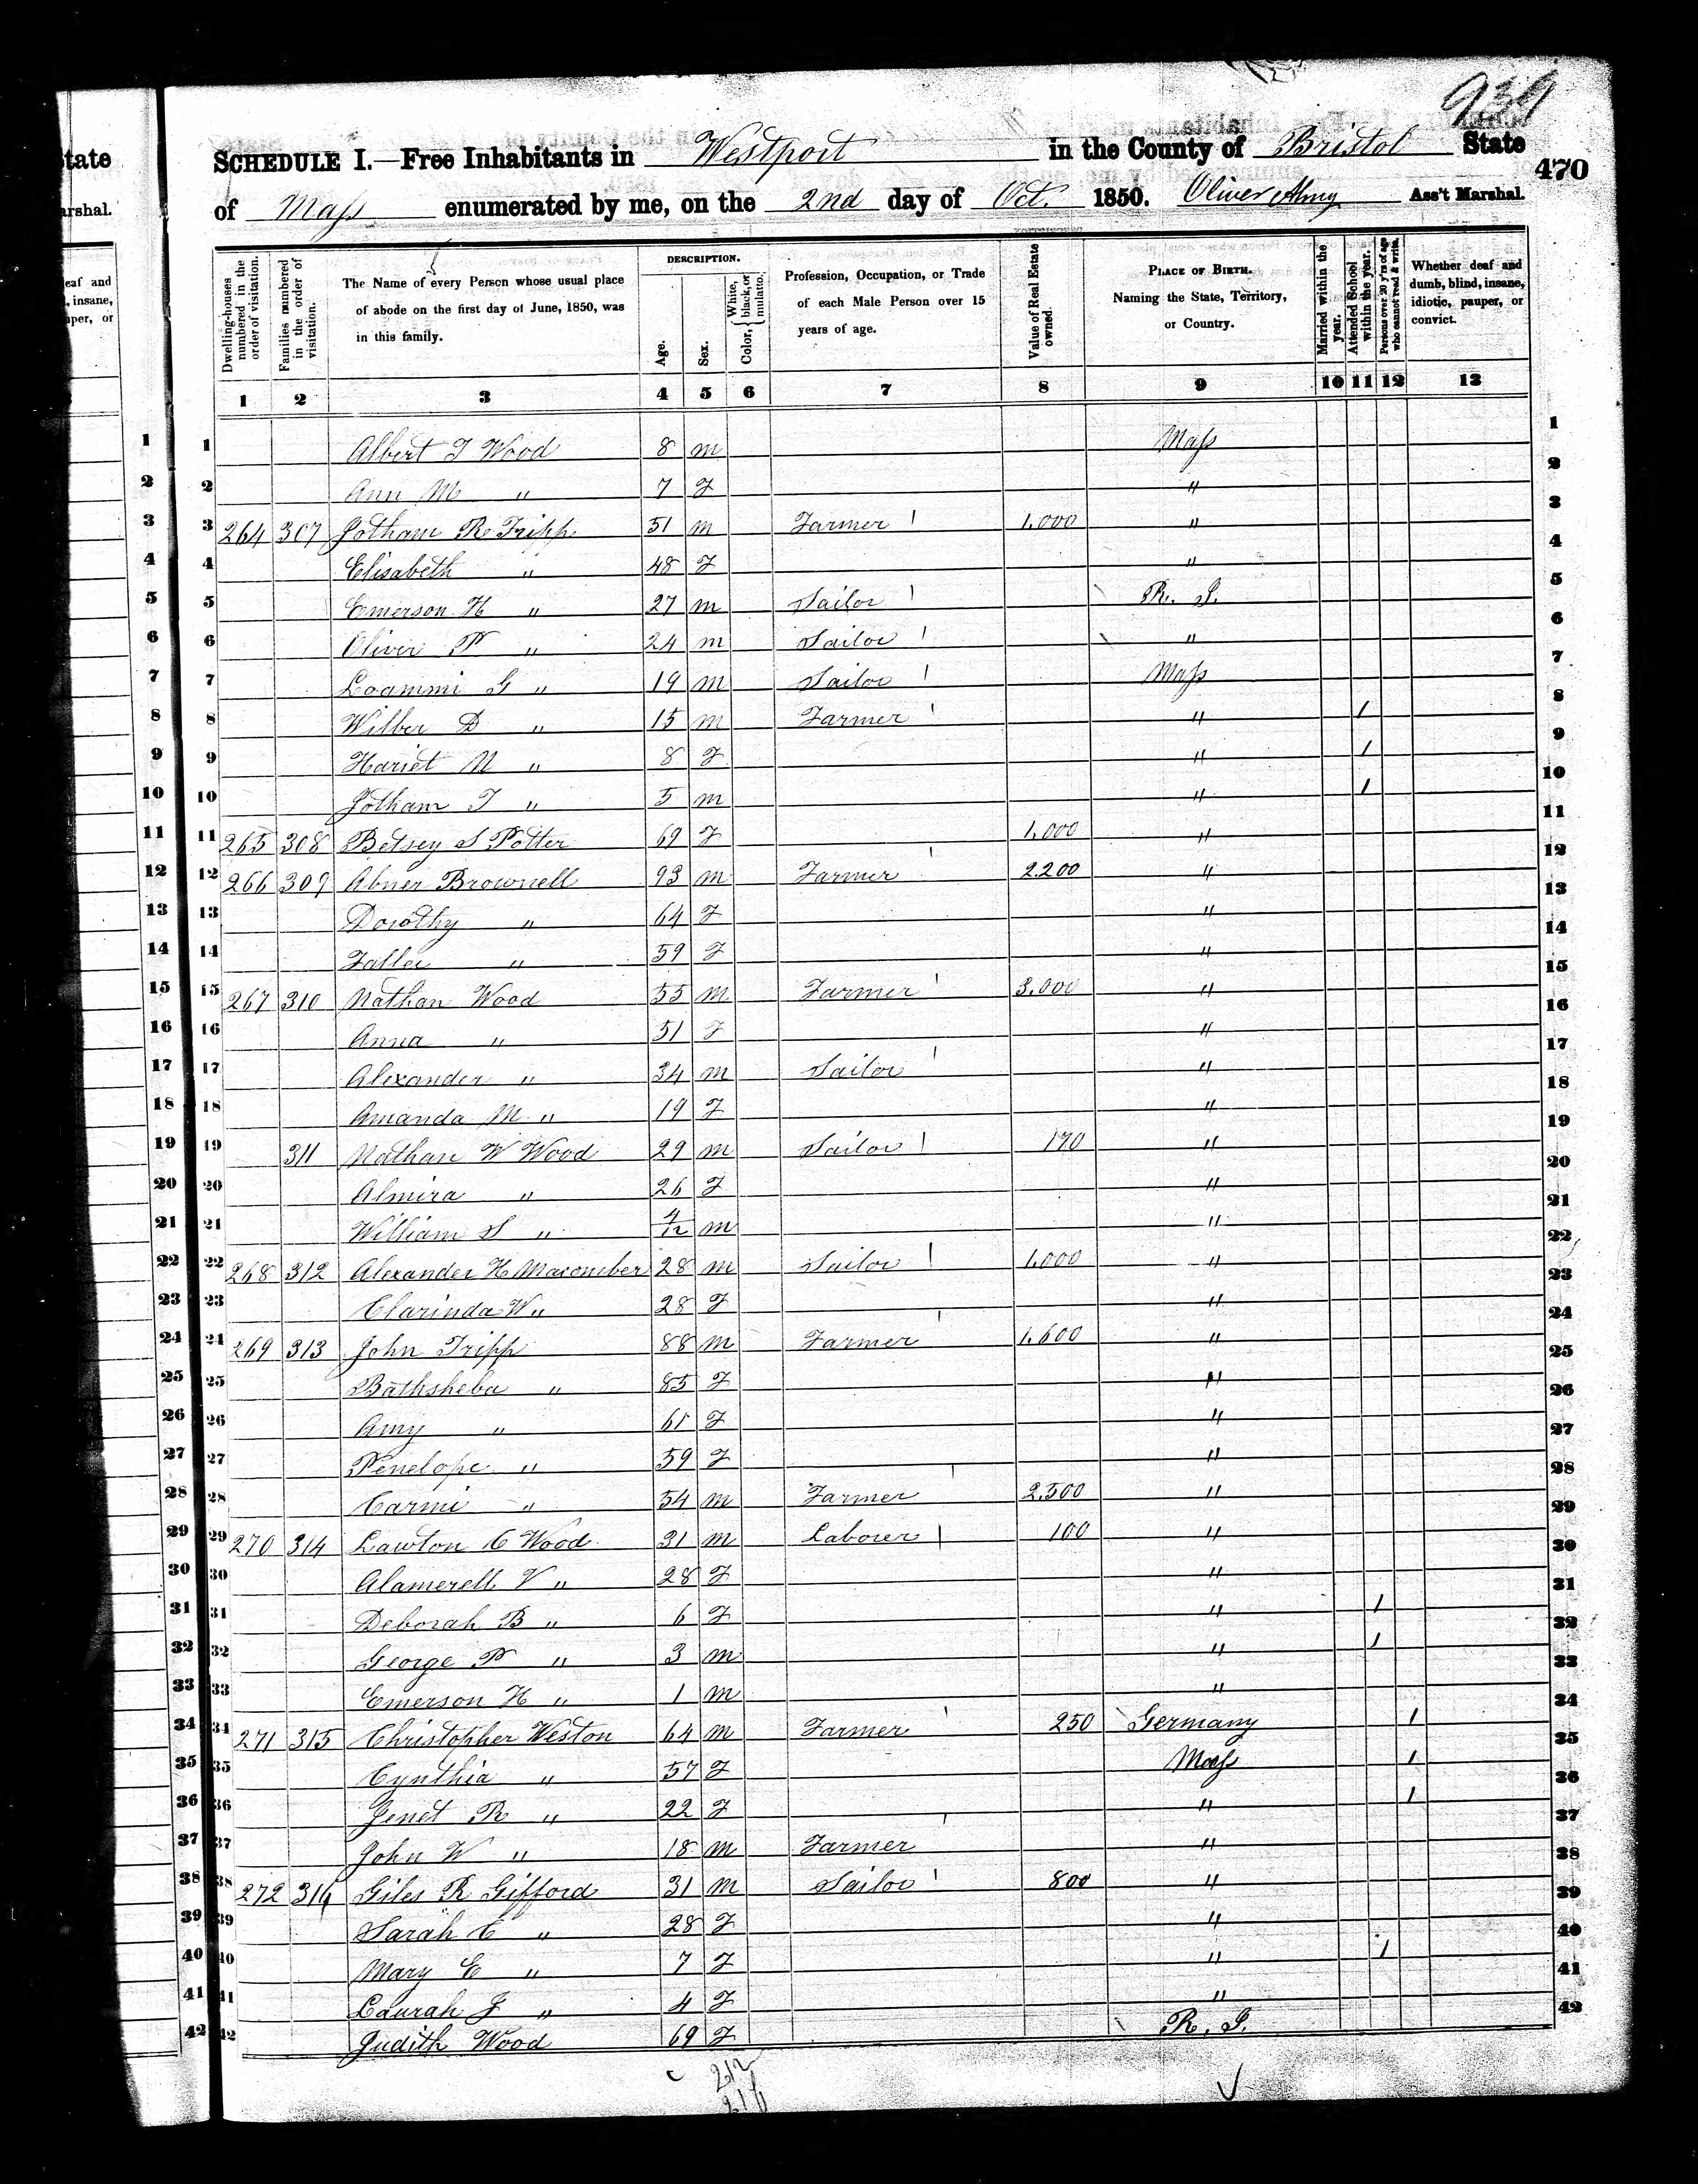 939
SCHEDULE I.—Free Inhabitants in Westport in the County of Bristol State
470
of Mass enumerated by me, on the 2nd day of Oct. 1850. Oliver Almy Ass't Marshal.
Dwelling-houses numbered in the order of visitation.
Families numbered in the order of visitation.
The Name of every Person whose usual place of abode on the first day of June, 1850, was in this family.
DESCRIPTION.
Age.
Sex.
Color, { White, black, or mulatto.
Profession, Occupation, or Trade of each Male Person over 15 years of age.
Value of Real Estate owned.
PLACE OF BIRTH. Naming the State, Territory, or Country.
Married within the year.
Attended School within the year.
Persons over 20 y'rs of age who cannot read & write.
Whether deaf and dumb, blind, insane, idiotic, pauper, or convict.
1 2 3 4 5 6 7 8 9 10 11 12 13
1 Albert T Wood 8 m Mass 1
2 Ann M " 7 F " 2
3 264 307 Jotham R Tripp 51 m Farmer 1,000 " 3
4 Elisabeth " 48 F " 4
5 Emerson H " 27 m Sailor R. I. 5
6 Oliver P " 24 m Sailor " 6
7 Loammi G " 19 m Sailor Mass 7
8 Wilber D " 15 m Farmer " 1 8
9 Hariet N " 8 F " 1 9
10 Jotham T " 5 m " 1 10
11 265 308 Betsey S Potter 69 F 1,000 " 11
12 266 309 Abner Brownell 93 m Farmer 2.200 " 12
13 Dorothy " 64 F " 13
14 " 59 F " 14
15 267 310 Nathan Wood 55 m Farmer 3,000 " 15
16 Anna " 51 F " 16
17 Alexander " 34 m Sailor " 17
18 Amanda M. " 19 F " 18
19 311 Nathan W Wood 29 m Sailor 170 " 19
20 Almira " 26 F " 20
21 William S " 4/12 m " 21
22 268 312 Alexander H Macomber 28 m Sailor 1,000 " 22
23 Clarinda W " 28 F " 23
24 269 313 John Tripp 88 m Farmer 1,600 " 24
25 Bathsheba " 85 F " 25
26 Amy " 61 F " 26
27 Penelope " 59 F " 27
28 Carmi " 54 m Farmer 2,500 " 28
29 270 314 Lawton C Wood 31 m Laborer 100 " 29
30 Alamerell V " 28 F " 30
31 Deborah B " 6 F " 1 31
32 George P " 3 m " 1 32
33 Emerson H " 1 m " 33
34 271 315 Christopher Weston 64 m Farmer 250 Germany 1 34
35 Cynthia " 57 F Mass 1 35
36 Jenet R " 22 F " 1 36
37 John W " 18 m Farmer " 37
38 272 316 Giles R Gifford 31 m Sailor 800 " 38
39 Sarah C " 28 F " 39
40 Mary E " 7 F " 1 40
41 Laurah J " 4 F " 41
42 Judith Wood 69 F R. I. 42
212
216